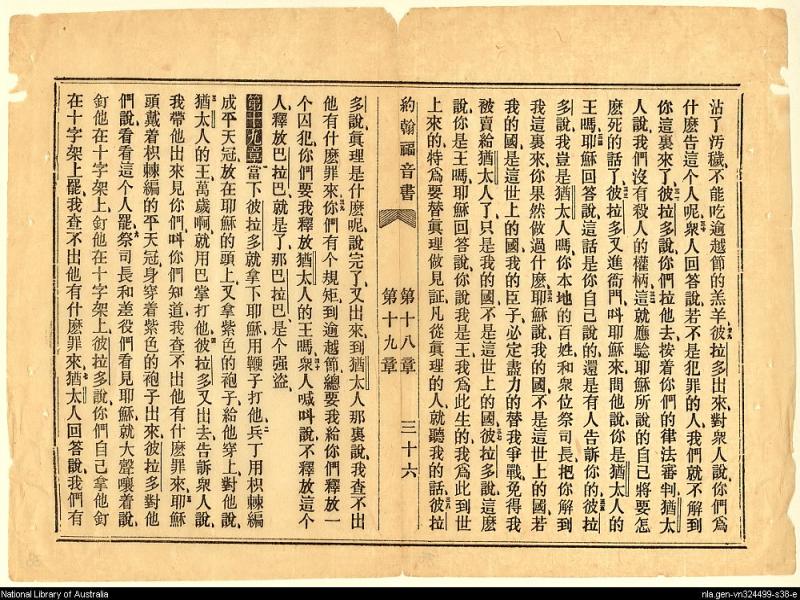 沾了汚穢不能吃逾越節的羔羊彼拉多出來對衆人說你們爲
什麽告這個人呢衆人回答說若不是犯罪的人我們就不解到
你這裏來了彼拉多說你們拉他去按着你們的律法審判猶太
人說我們沒有殺人的權柄這就應驗耶穌所說的自己將要怎
麽死的話了彼拉多又進衙門叫耶穌來問他說你是猶太人的
王嗎耶穌回答說這話是你自己說的還是有人告訴你的彼拉
多說我豈是猶太人嗎你本地的百姓和衆位祭司長把你解到
我這裏來你果然做過什麽耶穌說我的國不是這世上的國若
我的國是這世上的國我的臣子必定盡力的替我爭戰免得我
被賣給猶太人了只是我的國不是這世上的國彼拉多說這麽
說你是王嗎耶穌回答說你說我是王我爲此生的我爲此到世
上來的特爲要替眞理做見証凡從眞理的人就聽我的話彼拉
約翰福音書 第十八章 第十九章 三十六
多說眞理是什麽呢說完了又出來到猶太人那裏說我查不出
他有什麽罪來你們有個規矩到逾越節總要我給你們釋放一
個囚犯你們要我釋放猶太人的王嗎衆人喊叫說不釋放這個
人釋放巴拉巴就是了那巴拉巴是個强盜
第十九章當下彼拉多就拿下耶穌用鞭子打他兵丁用枳棘編
成平天冠放在耶穌的頭上又拿紫色的袍子給他穿上對他說
猶太人的王萬歲啊就用巴掌打他彼拉多又出去告訴衆人說
我帶他出來見你們叫你們知道我查不出他有什麽罪來耶穌
頭戴着枳棘編的平天冠身穿着紫色的袍子出來彼拉多對他
們說看看這個人罷祭司長和差役們看見耶穌就大聲嚷着說
釘他在十字架上釘他在十字架上彼拉多說你們自己拿他釘
在十字架上罷我查不出他有什麽罪來猶太人回答說我們有
National Library of Australia
nla.gen-vn324499-s38-e